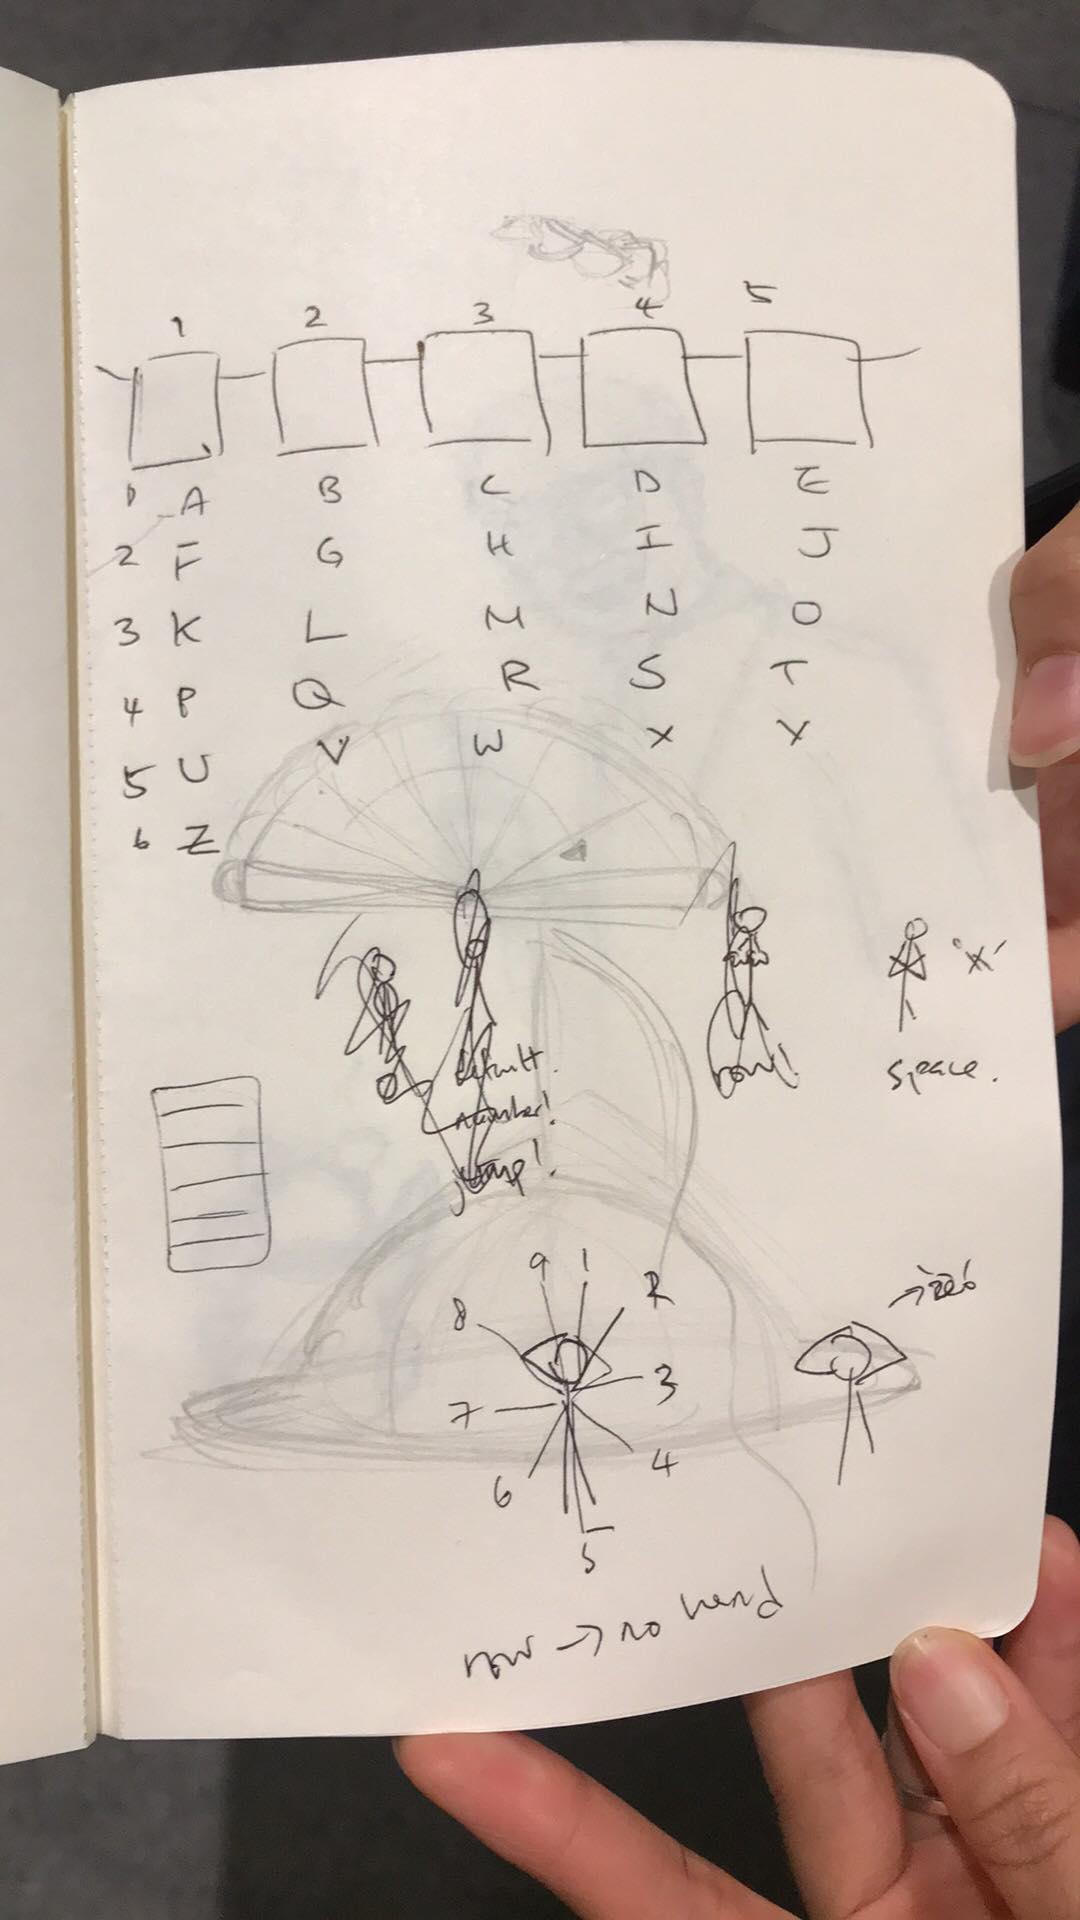 1 2 3 4 5
1 A B C D E
2 F G H I J
3 K L M N O
4 P Q R S T
5 U V W X Y
6 Z
'X'
default.
number!
jump!
space.
9 1 2
8
3
7
4
6
5
row → no hand